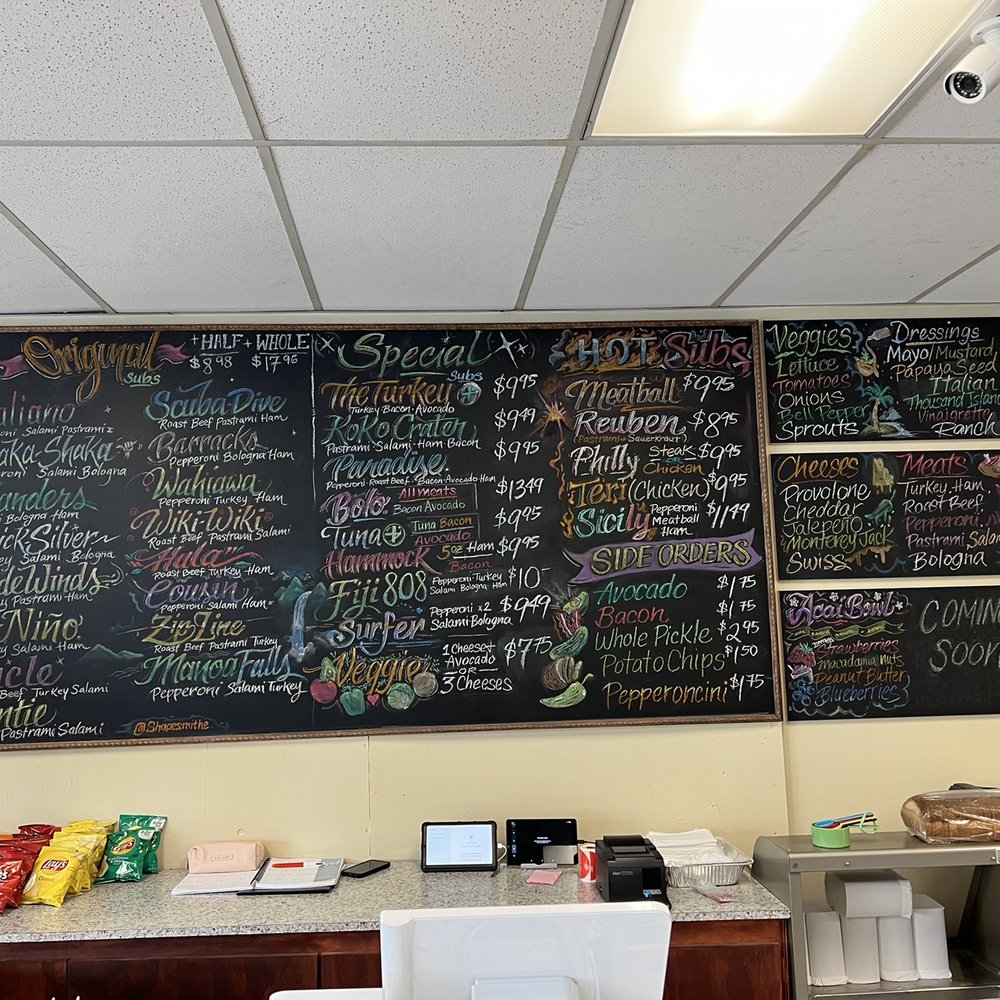 Original
Subs
+HALF + WHOLE
$8.98 $17.96
Salami Pastrami
Shaka
Salami Bologna
Bologna Ham
Silver
Salami Bologna
Winds
Pastrami Ham
Niño
Salami Ham
Beef Turkey Salami
Pastrami Salami
Scuba Dive
Roast Beef Pastrami Ham
Barracks
Pepperoni Bologna Ham
Wahiawa
Pepperoni Turkey Ham
Wiki-Wiki
Roast Beef Pastrami Salami
Hula
Roast Beef Turkey Ham
Cousin
Pepperoni Salami Ham
ZipLine
Roast Beef Pastrami Turkey
Manoa Falls
Pepperoni Salami Turkey
@Shapesmithe
Special
Subs
The Turkey + $9.95
Turkey·Bacon·Avocado
KoKo Crater $9.49
Pastrami·Salami·Ham·Bacon
Paradise $9.95
Pastrami·Roast Beef·Bacon·Avocado·Ham
Bolo All meats $13.49
Bacon Avocado
Tuna + Tuna Bacon $9.95
Avocado
Hammock 5oz Ham $9.95
Bacon
Fiji 808 Pepperoni·Turkey $10-
Salami·Bologna·Ham
Surfer Pepperoni x2 $9.49
Salami·Bologna
Veggie 1 Cheese+ $7.75
Avocado
OR
3 Cheeses
HOT Subs
Meatball $9.95
Reuben $8.95
Pastrami+Sauerkraut
Philly Steak $9.95
Chicken
Teri (Chicken) $9.95
Sicily Pepperoni $11.49
Meatball
Ham
SIDE ORDERS
Avocado $1.75
Bacon $1.75
Whole Pickle $2.95
Potato Chips $1.50
Pepperoncini $1.75
Veggies
Lettuce
Tomatoes
Onions
Bell Pepper
Sprouts
Dressings
Mayo/Mustard
Papaya Seed
Italian
Thousand Island
Vinaigrette
Ranch
Cheeses
Provolone
Cheddar
Jalepeño
Monterey Jack
Swiss
Meats
Turkey, Ham
Roast Beef,
Pepperoni,
Pastrami, Salami
Bologna
Açaí Bowl
Strawberries
macadamia nuts
Peanut Butter
Blueberries
Lay's